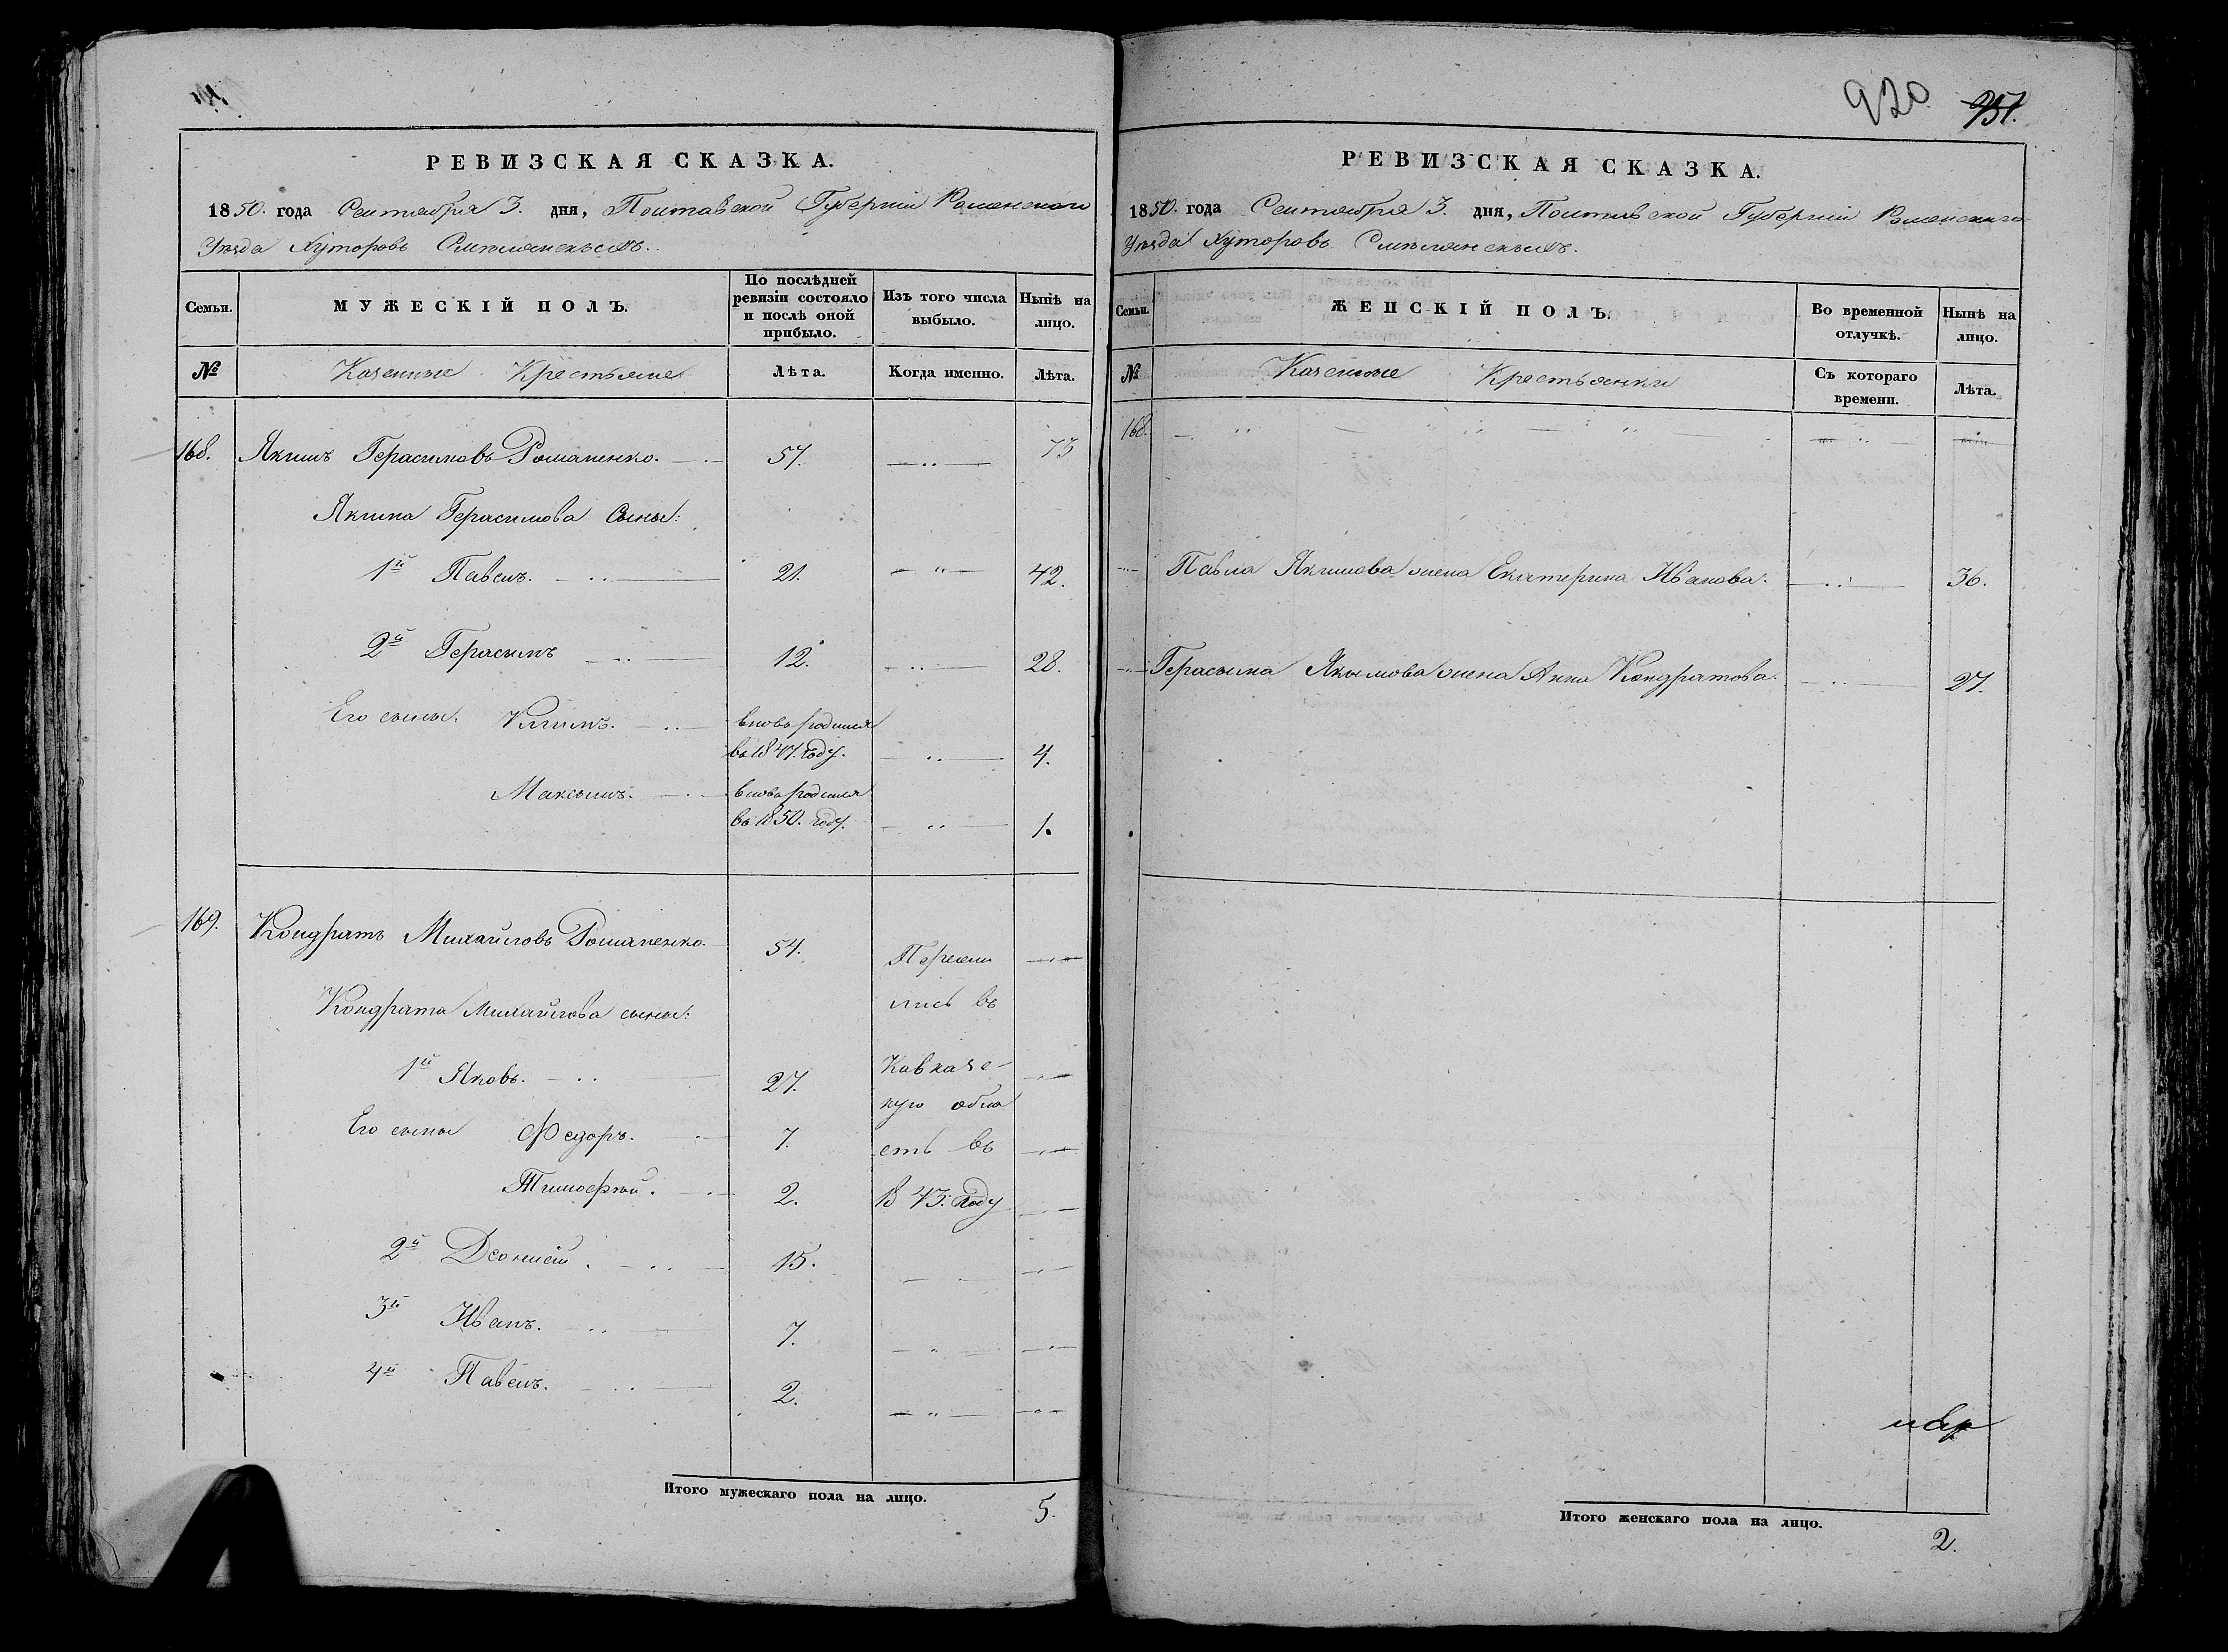 РЕВИЗСКАЯ СКАЗКА.
1850. года Сентября 3. дня, Полтавской Губерніи Роменскаго
Уѣзда Хуторовъ Смѣлянскихъ.
Семьи.
МУЖЕСКІЙ ПОЛЪ.
По послѣдней
ревизіи состояло
и послѣ оной
прибыло.
Изъ того числа
выбыло.
Нынѣ на
лицо.
№
Казенные Крестьяне
Лѣта.
Когда именно.
Лѣта.
168. Якимъ Герасимовъ Романенко. 57. 73
Якима Герасимова сыны:
1й Павелъ. 21. 42.
2й Герасимъ 12. 28.
Его сыны. Климъ. вновь родился
въ 1847. году. 4.
Максимъ. вновь родился
въ 1850. году. 1.
169. Кондратъ Михайловъ Романенко. 54. Пересели
лись въ
Кондрата Михайлова сыны:
1й Яковъ. 27. Кавказс-
кую обла
Его сыны Федоръ. 7. сть въ
Тимофѣй. 2. 1843. году
2й Деонисій. 15.
3й Иванъ. 7.
4й Павелъ. 2.
Итого мужескаго пола на лицо. 5.
920 951.
РЕВИЗСКАЯ СКАЗКА.
1850. года Сентября 3. дня, Полтавской Губерніи Роменскаго
Уѣзда Хуторовъ Смѣлянскихъ.
Семьи.
ЖЕНСКІЙ ПОЛЪ.
Во временной
отлучкѣ.
Нынѣ на
лицо.
№
Казенные Крестьянки
Съ котораго
времени.
Лѣта.
168.
Павла Якимова жена Екатерина Иванова. 36.
Герасима Якимова жена Анна Кондратова. 27.
Итого женскаго пола на лицо. 2.